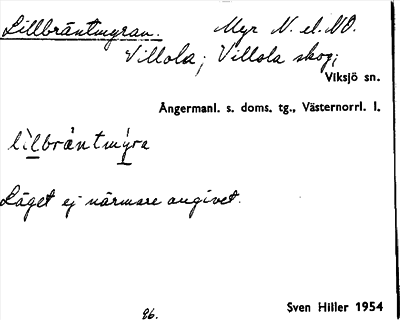 Lillbräntmyran. Myr N. el. NO.
Villola; Villola skog;
Viksjö sn.
Ångermanl. s. doms. tg., Västernorrl. l.
lìlbränt mýra
Läget ej närmare angivet.
96. Sven Hiller 1954